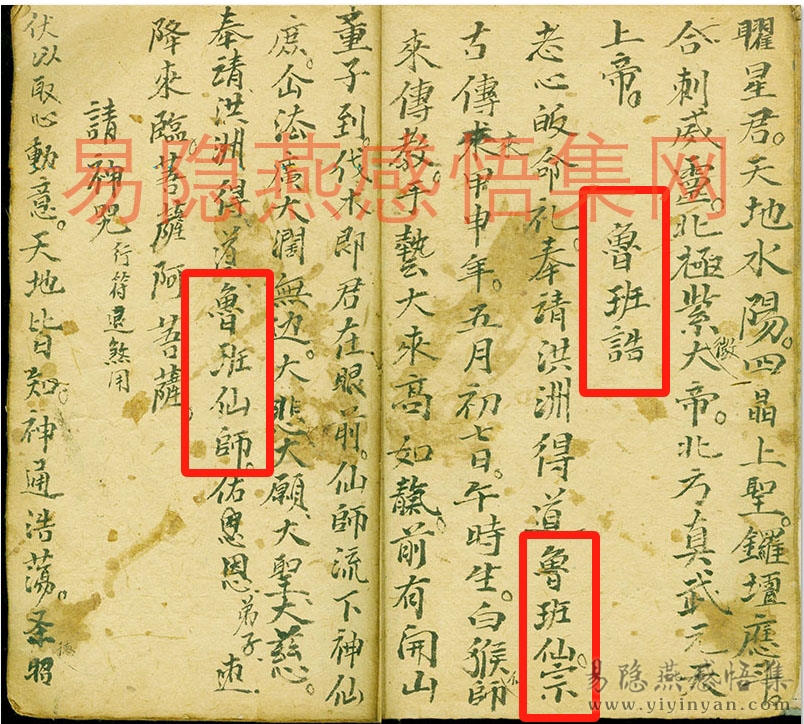 曜星君。天地水陽。四晶上聖。鑼壇應
合刺威靈。北極紫微大帝。北方真武元天
上帝。
魯班誥
志心皈命礼。奉請洪洲得道魯班仙宗
古傳來甲申年。五月初七日。午時生。白猴師
來傳教。手藝大來高如
前有開山
童子到。伐木即君在眼前。仙師流下神仙
法廣大濶無边。大悲大願大聖大慈。
奉請洪洲得道魯班仙師。佑思恩弟子
降來臨。菩薩阿菩薩。
請神咒 行符退煞用
伏以取心動意。天地皆知。神通浩荡。圣
易隐燕感悟集网
易隐燕感悟集
www.yiyinyan.com